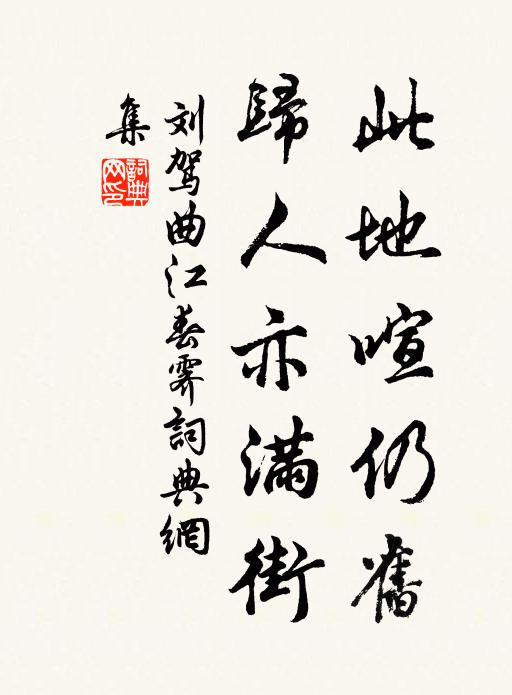 此地喧仍舊
歸人亦滿街
刘驾曲江春霽詞典網
集
詞典網印